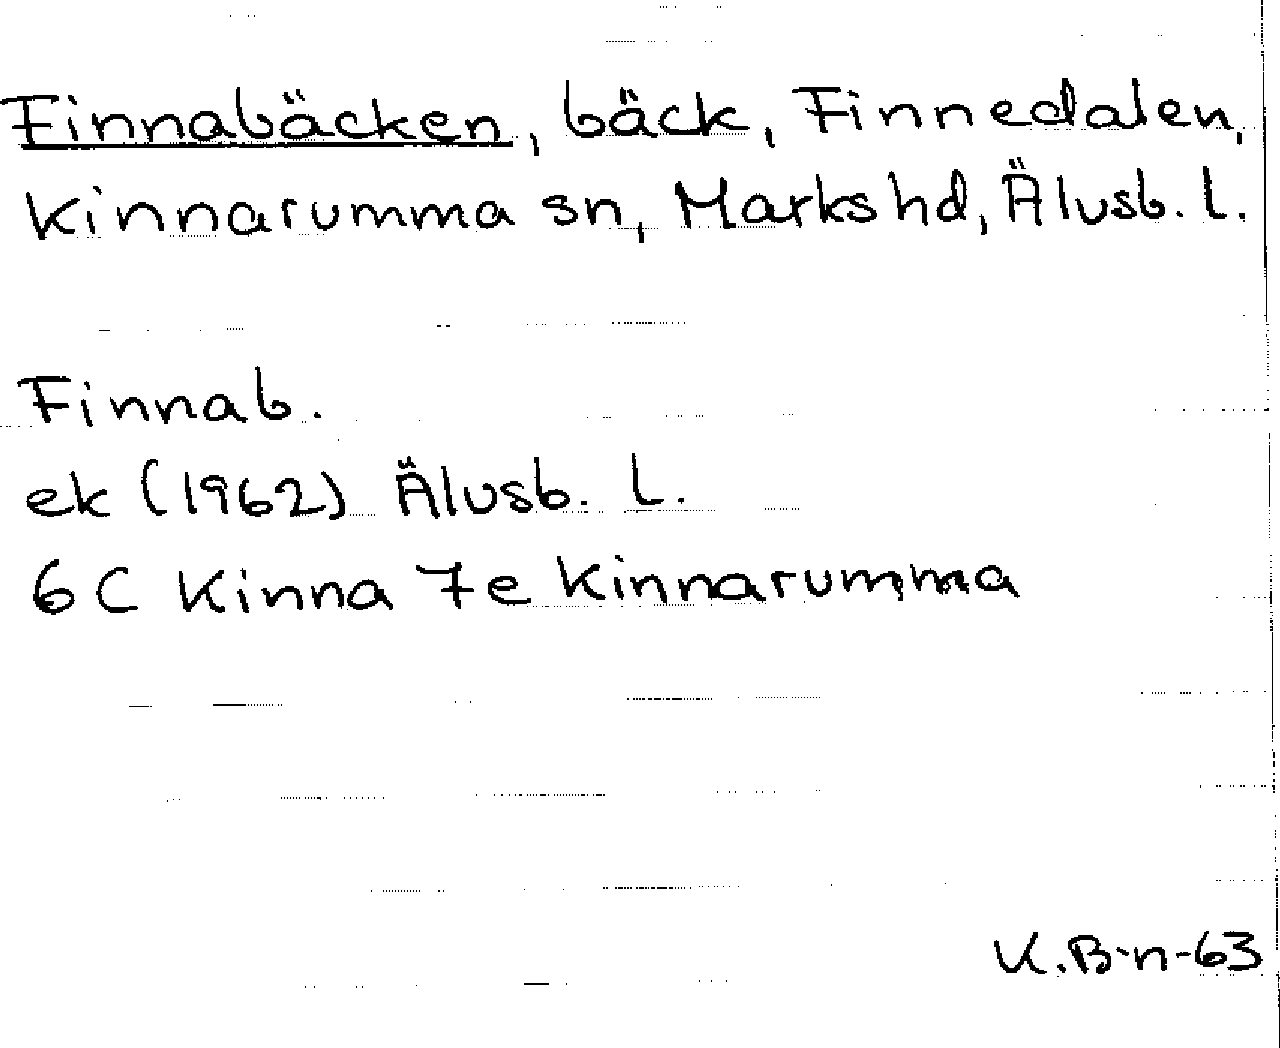 Finnabäcken, bäck, Finnedalen,
Kinnarumma sn, Marks hd, Älvsb. l.
Finnab.
ek (1962) Älvsb. L.
6C Kinna 7e Kinnarumma
K.B-n-63